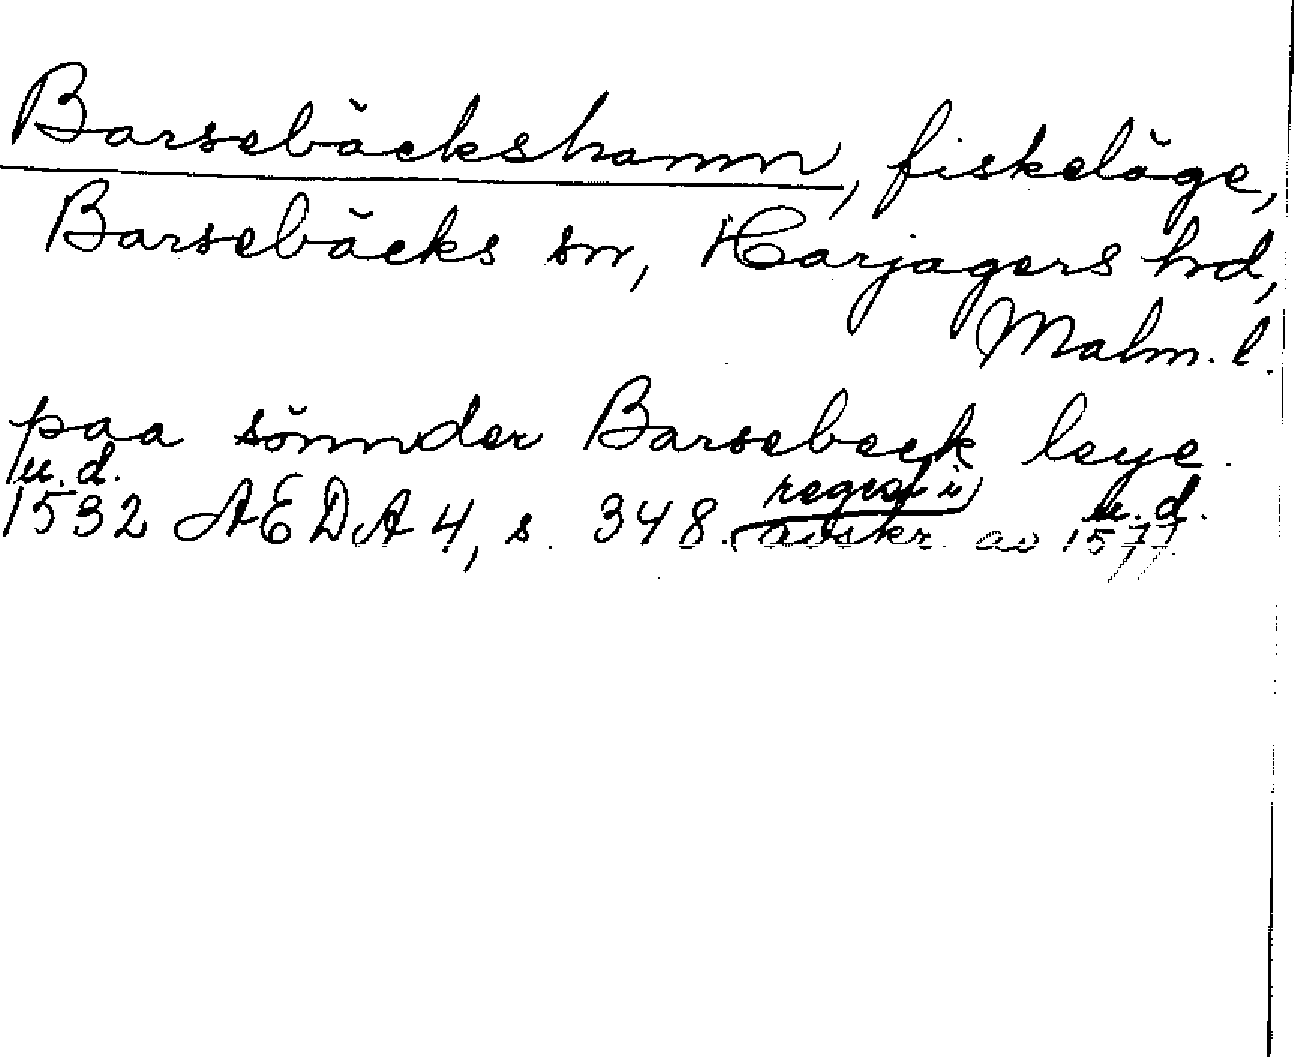 Barsebäckshamn, fiskeläge,
Barsebäcks sn, Harjagers hd,
Malm. l.
paa sönnder Barsebeck leye.
u. d.
1532 AEDA 4, s. 348. (avskr. av 1577
regist i)
u. d.